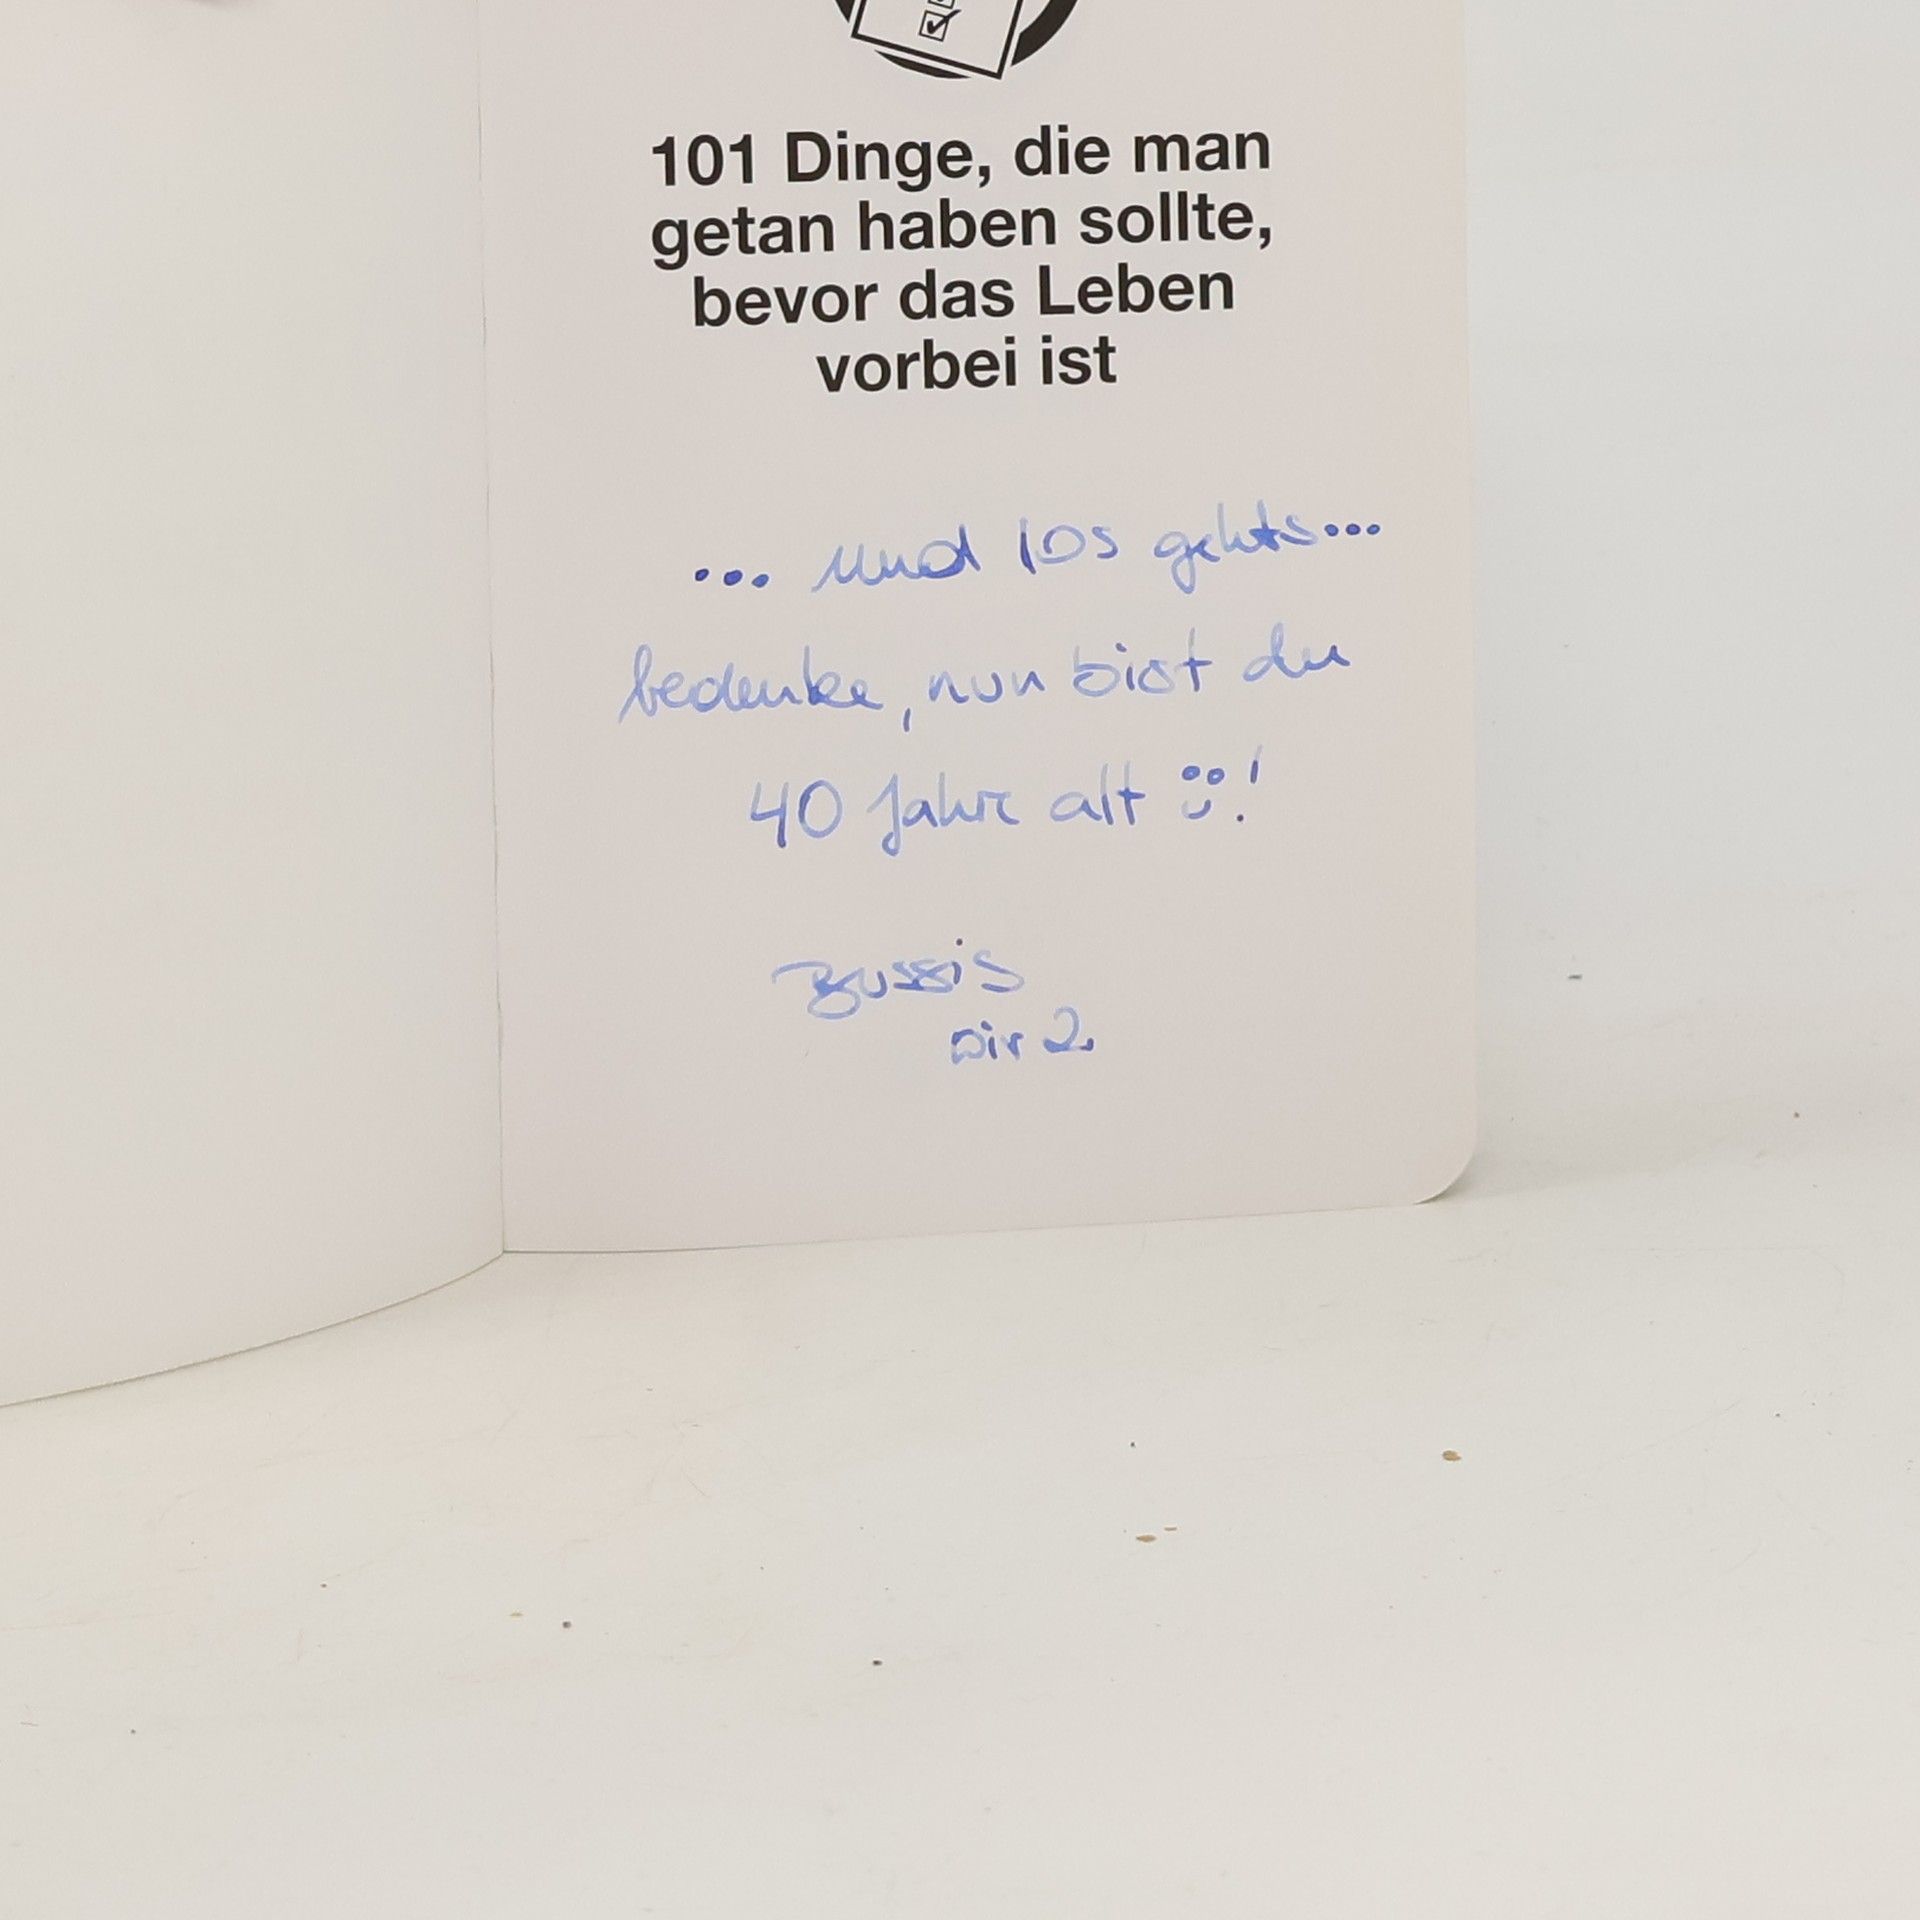 101 Dinge, die man
getan haben sollte,
bevor das Leben
vorbei ist
... und los gehts...
bedenke, nun bist du
40 Jahre alt !
Bussis
Wir 2